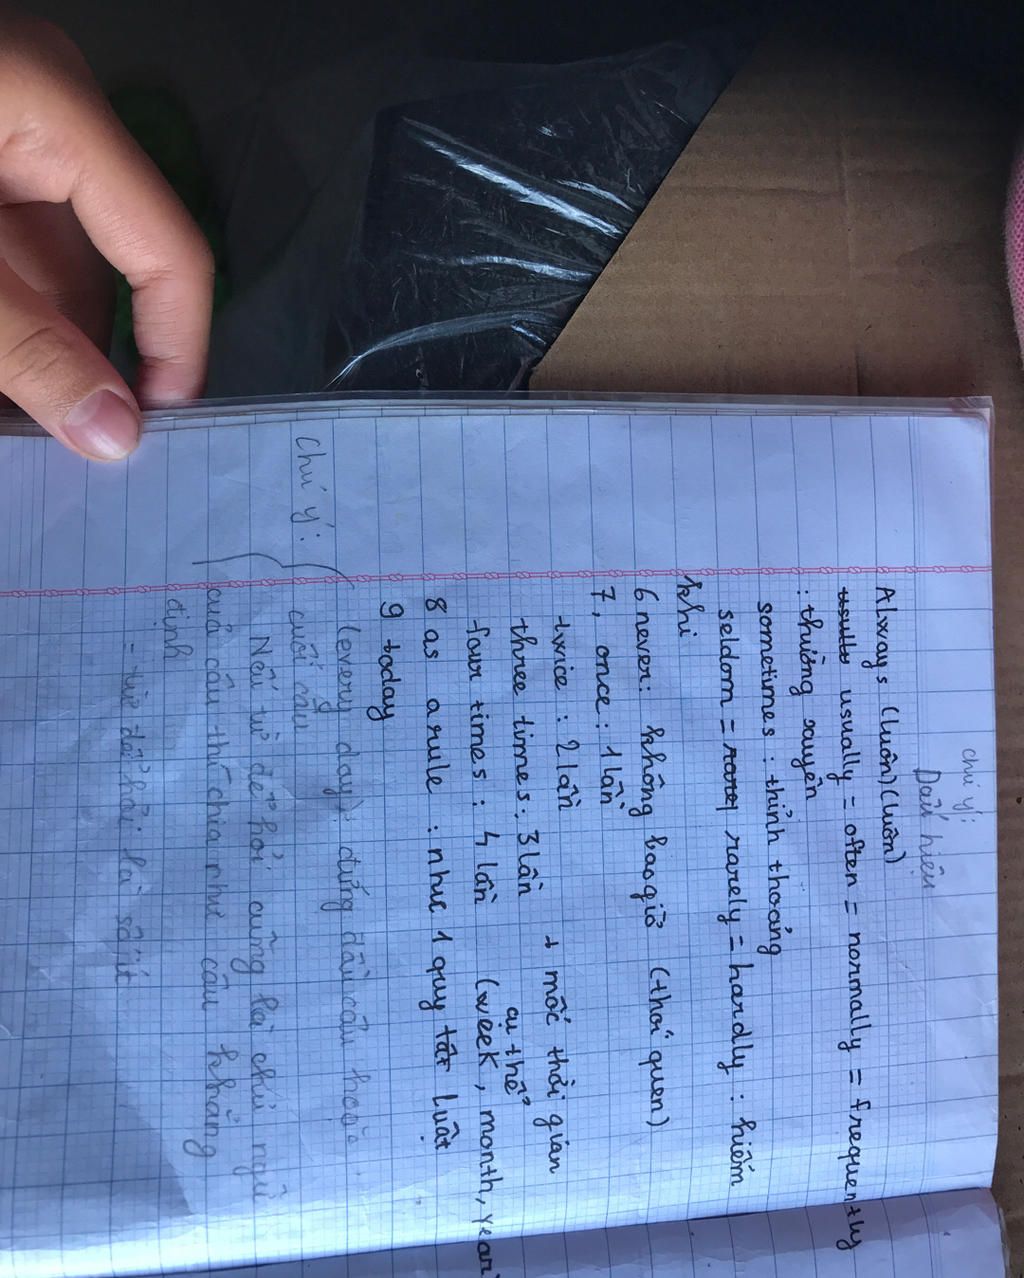 chú ý:
Dấu hiệu
Always (luôn) (luôn)
usually = often = normally = frequently
: thường xuyên
sometimes : thỉnh thoảng
seldom = rarely = hardly : hiếm
khi
6 never: không bao giờ (thói quen)
7, once : 1 lần
twice : 2 lần + mốc thời gian
three times : 3 lần cụ thể
four times : 4 lần (week, month, year
8 as a rule : như 1 quy luật
9 today
Chú ý: (every day): đứng đầu câu hoặc
cuối câu
Nếu từ để hỏi cũng là chủ ngữ
của câu thì chia như câu khẳng
định
= từ để hỏi là số ít